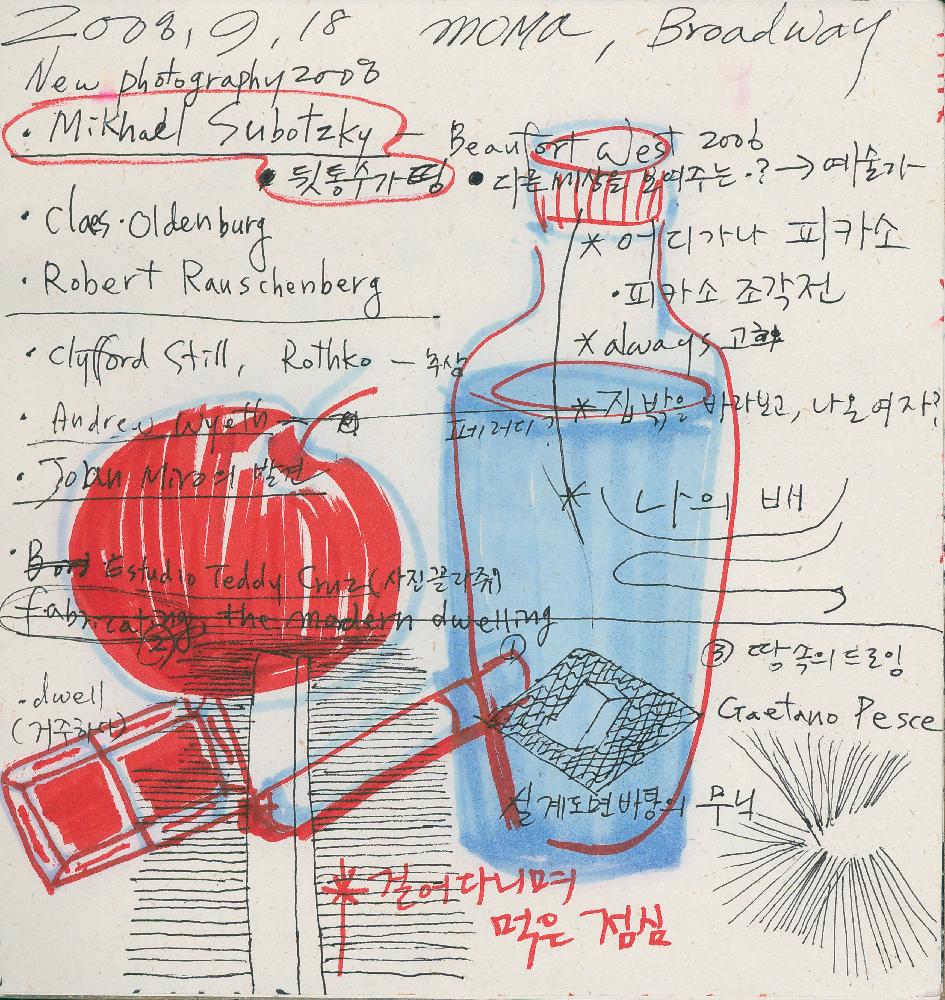 2008, 9, 18 MOMA, Broadway
New photography 2008
· Mikhael Subotzky — Beaufort West 2006
● 뒷통수가 띵 ● 다른 세상을 보여주는·? → 예술가
· Claes·Oldenburg
* 어디가나 피카소
· Robert Rauschenberg
· 피카소 조각전
* always 고흐
· Clyfford Still, Rothko — 추상
* 집밖을 바라보고, 나올 여자?
· Andrew Wyeth
페러디?
· Joban Miro의 발견
* 나의 배
· Estudio Teddy Cruz (사진꼴라쥬)
fabricating the modern dwelling
②
①
③ 땅속의 드로잉
· dwell
(거주하다)
Gaetano Pesce
설계도면바탕의 무늬
* 걸어다니며
먹은 점심